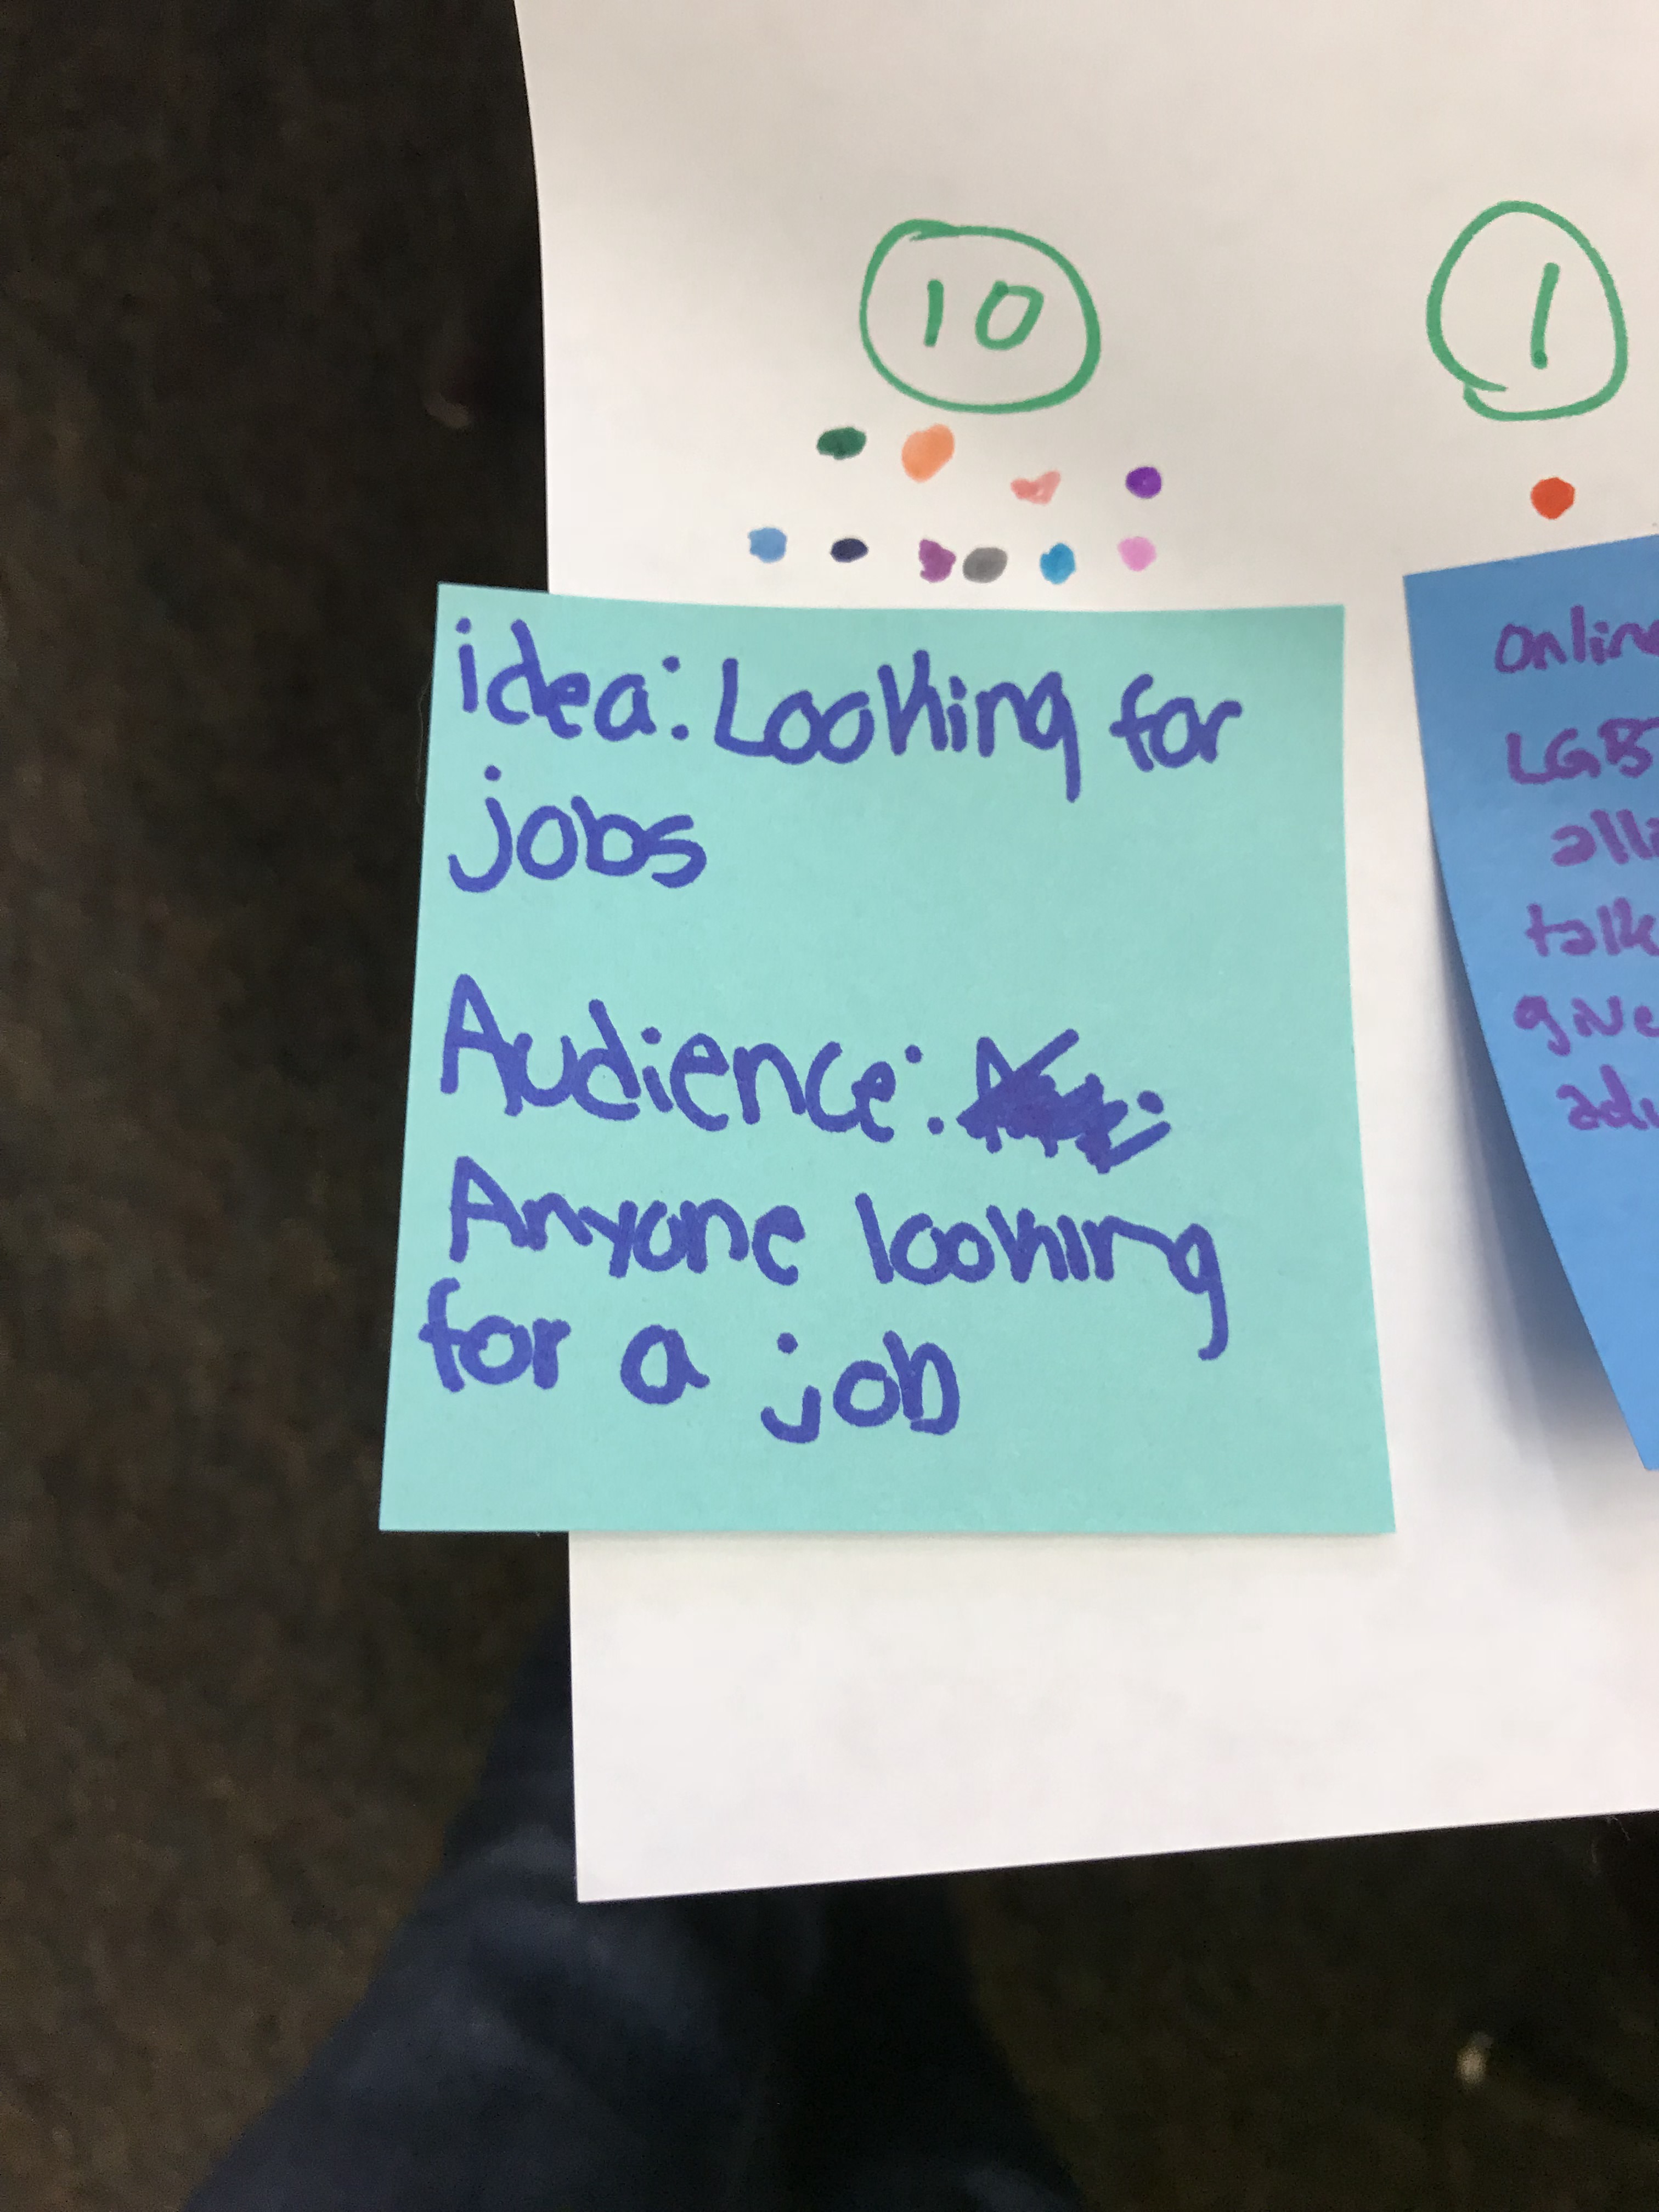 10
1
idea: Looking for
jobs
Audience:
Anyone looking
for a job
Online
LGBT
talk
give